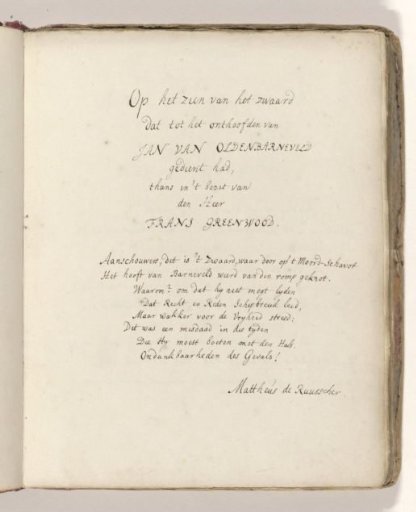 Op het zien van het zwaard
dat tot het onthoofden van
JAN VAN OLDENBARNEVELD
gedient had,
thans in't bezit van
den Heer
FRANS GREENWOOD.
Aanschouwers, dit is 't Zwaard, waar door op 't Moord-Schavot
Het hooft van Barneveld wierd van den romp geknot.
Waarom? om dat hy nest mogt lyden
Dat Recht en Reden Schipbreuk leed,
Maar wakker voor de Vryheid streed.
Dit was een misdaad in die tyden
Die Hy moest boeten met den Hals
Ondankbaarheden des Gevals!
Mattheus de Ruusscher